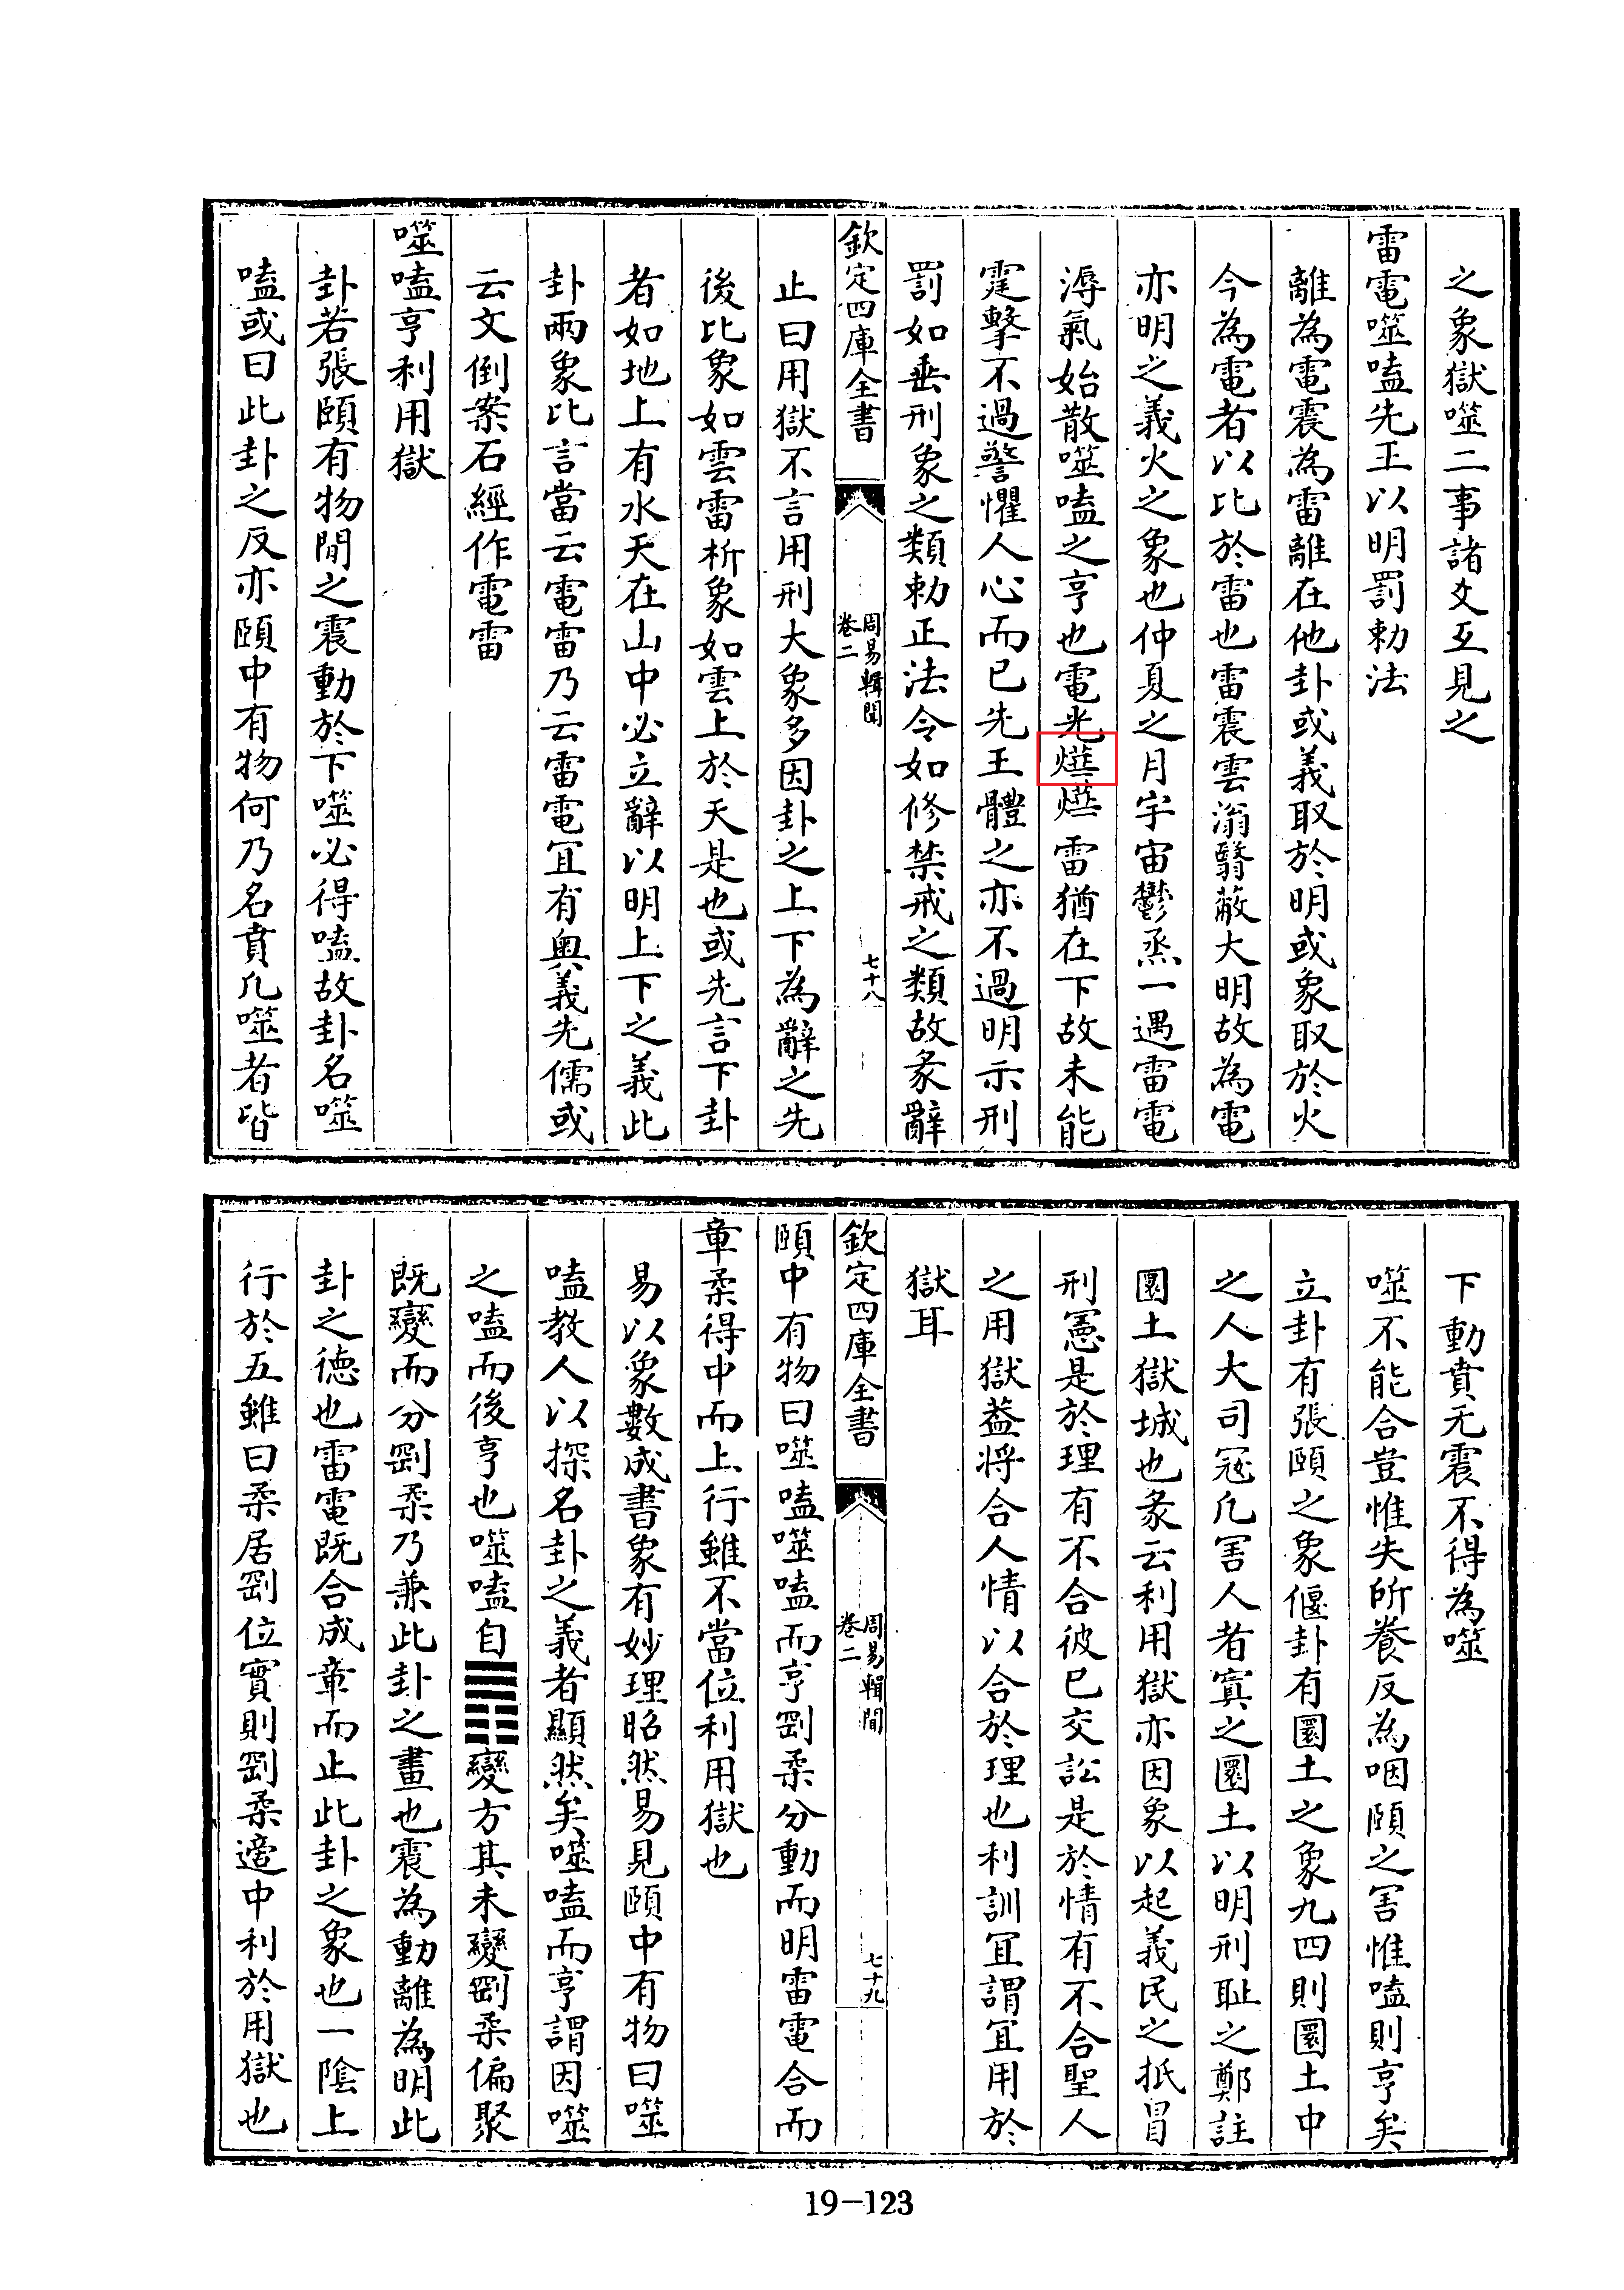 之象獄噬二事諸爻互見之
雷電噬嗑先王以明罰勅法
離為電震為雷離在他卦或義取於明或象取於火
今為電者以比於雷也雷震雲滃翳蔽大明故為電
亦明之義火之象也仲夏之月宇宙鬱烝一遇雷電
溽氣始散噬嗑之亨也電光燁燁雷猶在下故未能
霆擊不過警懼人心而已先王體之亦不過明示刑
罰如垂刑象之類勅正法令如修禁戒之類故彖辭
欽定四庫全書
周易輯聞
卷二
七十八
止曰用獄不言用刑大象多因卦之上下為辭之先
後比象如雲雷析象如雲上於天是也或先言下卦
者如地上有水天在山中必立辭以明上下之義此
卦兩象比言當云電雷乃云雷電冝有奥義先儒或
云文倒案石經作電雷
噬嗑亨利用獄
卦若張頤有物間之震動於下噬必得嗑故卦名噬
嗑或曰此卦之反亦頤中有物何乃名賁凡噬者皆
下動賁无震不得為噬
噬不能合豈惟失所養反為咽頤之害惟嗑則亨矣
立卦有張頤之象偃卦有圜土之象九四則圜土中
之人大司寇凡害人者寘之圜土以明刑耻之鄭註
圜土獄城也彖云利用獄亦因象以起義民之抵冒
刑憲是於理有不合彼已交訟是於情有不合聖人
之用獄葢将合人情以合於理也利訓冝謂冝用於
獄耳
欽定四庫全書
周易輯聞
卷二
七十九
頤中有物曰噬嗑噬嗑而亨剛柔分動而明雷電合而
章柔得中而上行雖不當位利用獄也
易以象數成書象有妙理昭然易見頤中有物曰噬
嗑教人以探名卦之義者顯然矣噬嗑而亨謂因噬
之嗑而後亨也噬嗑自䷋變方其未變剛柔偏聚
既變而分剛柔乃兼此卦之畫也震為動離為明此
卦之德也雷電既合成章而止此卦之象也一陰上
行於五雖曰柔居剛位實則剛柔適中利於用獄也
19-123